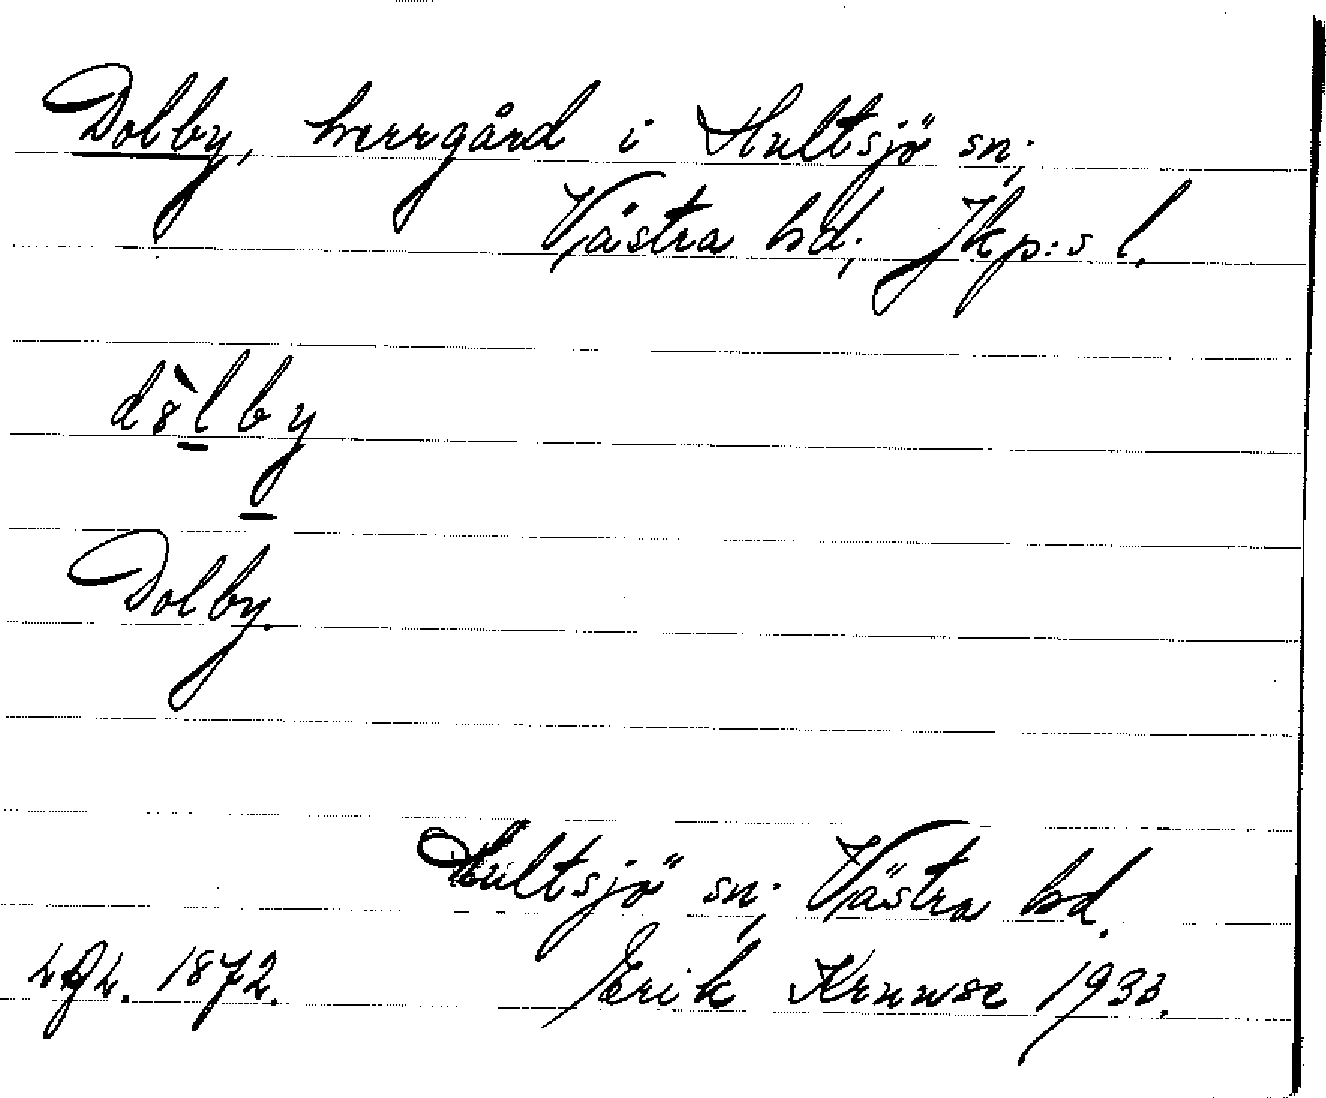 Dolby, herrgård i Hultsjö sn;
Västra hd; Jkp:s l.
dòlby
Dolby.
Hultsjö sn; Västra hd.
1872.
Erik Kruuse 1933.